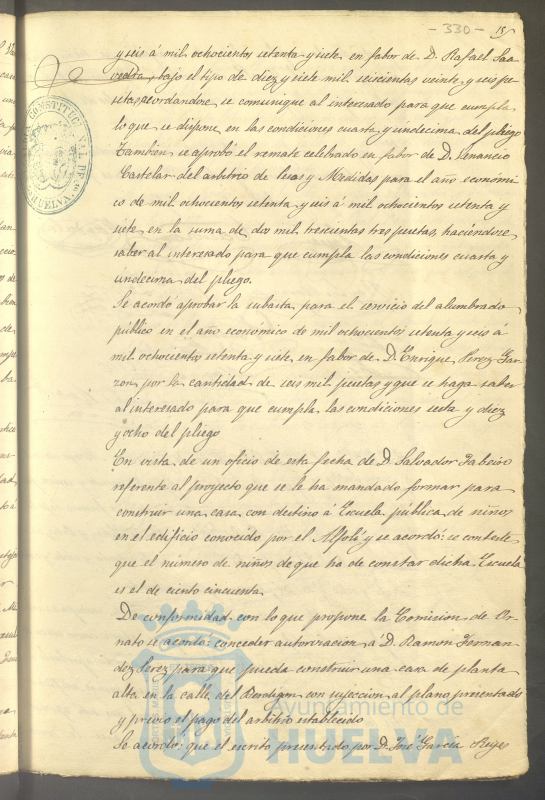 - 330 -
15
y seis á mil ochocientos setenta y siete, en favor de D. Rafael Saa-
vedra, bajo el tipo de diez y siete mil seiscientas veinte y seis pe-
setas, acordandose, se comunique al interesado para que cumpla
lo que se dispone en las condiciones cuarta y undecima del pliego
Tambien se aprobó el remate celebrado en fabor de D. Venancio
Castelar del arbitrio de Pesas y Medidas para el año económi-
co de mil ochocientos setenta y seis á mil ochocientos setenta y
siete, en la suma de dos mil trescientas tres pesetas, haciéndose
saber al interesado para que cumpla las condiciones cuarta y
undecima del pliego.
Se acordó aprobar la subasta para el servicio del alumbrado
público en el año economico de mil ochocientos setenta y seis á
mil ochocientos setenta y siete, en fabor de D. Enrique Perez Gar-
zon, por la cantidad de seis mil pesetas y que se haga saber
al interesado para que cumpla las condiciones sesta y diez
y ocho del pliego
En vista de un oficio de esta fecha de D. Salvador
referente al proyecto que se le ha mandado formar para
construir una casa con destino á Escuela pública de niños
en el edificio conocido por el Alfolí y se acordó: se conteste
que el número de niños de que ha de constar dicha Escuela
es el de ciento cincuenta
De conformidad con lo que propone la Comision de Or-
nato se acordó: conceder autorizacion á D. Ramón Fernan-
dez Perez para que pueda construir una casa de planta
alta en la calle del Rendigon con sujeccion al plano presentado
y previo el pago del arbitrio establecido
Se acordó: que el escrito presentado por D. José García Reyes
CONSTITUC
HUELVA
Ayuntamiento de
HUELVA